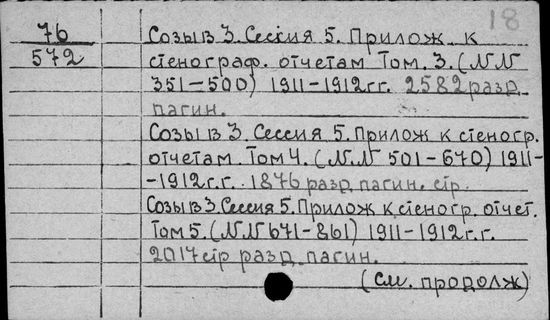 18
76
572
Созыв 3. Сессия 5. Прилож. к
стенограф. отчетам Том. 3. (NN
351-500) 1911-1912гг. 2582 разд.
пагин.
Созыв 3. Сессия 5. Прилож к стеногр.
отчетам. Том 4. (N.N 501-670) 1911-
-1912г.г. 1876 разд. пагин. стр.
Созыв 3 Сессия 5. Прилож к стеногр. отчет.
Том 5. (N.N 671-861) 1911-1912г.г.
2017 стр разд. пагин.
(см. продолж)